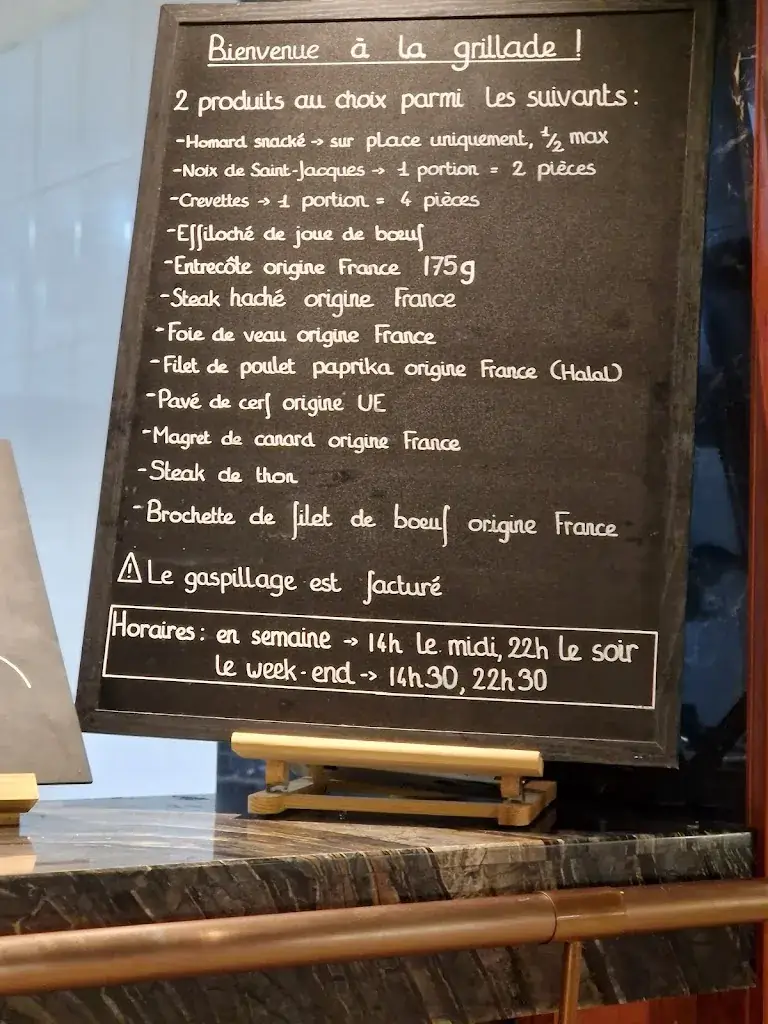 Bienvenue à la grillade !
2 produits au choix parmi les suivants :
-Homard snacké → sur place uniquement, 1/2 max
-Noix de Saint-Jacques → 1 portion = 2 pièces
-Crevettes → 1 portion = 4 pièces
-Effiloché de joue de bœuf
-Entrecôte origine France 175g
-Steak haché origine France
-Foie de veau origine France
-Filet de poulet paprika origine France (Halal)
-Pavé de cerf origine UE
-Magret de canard origine France
-Steak de thon
-Brochette de filet de bœuf origine France
⚠ Le gaspillage est facturé
Horaires : en semaine → 14h le midi, 22h le soir
le week-end → 14h30, 22h30